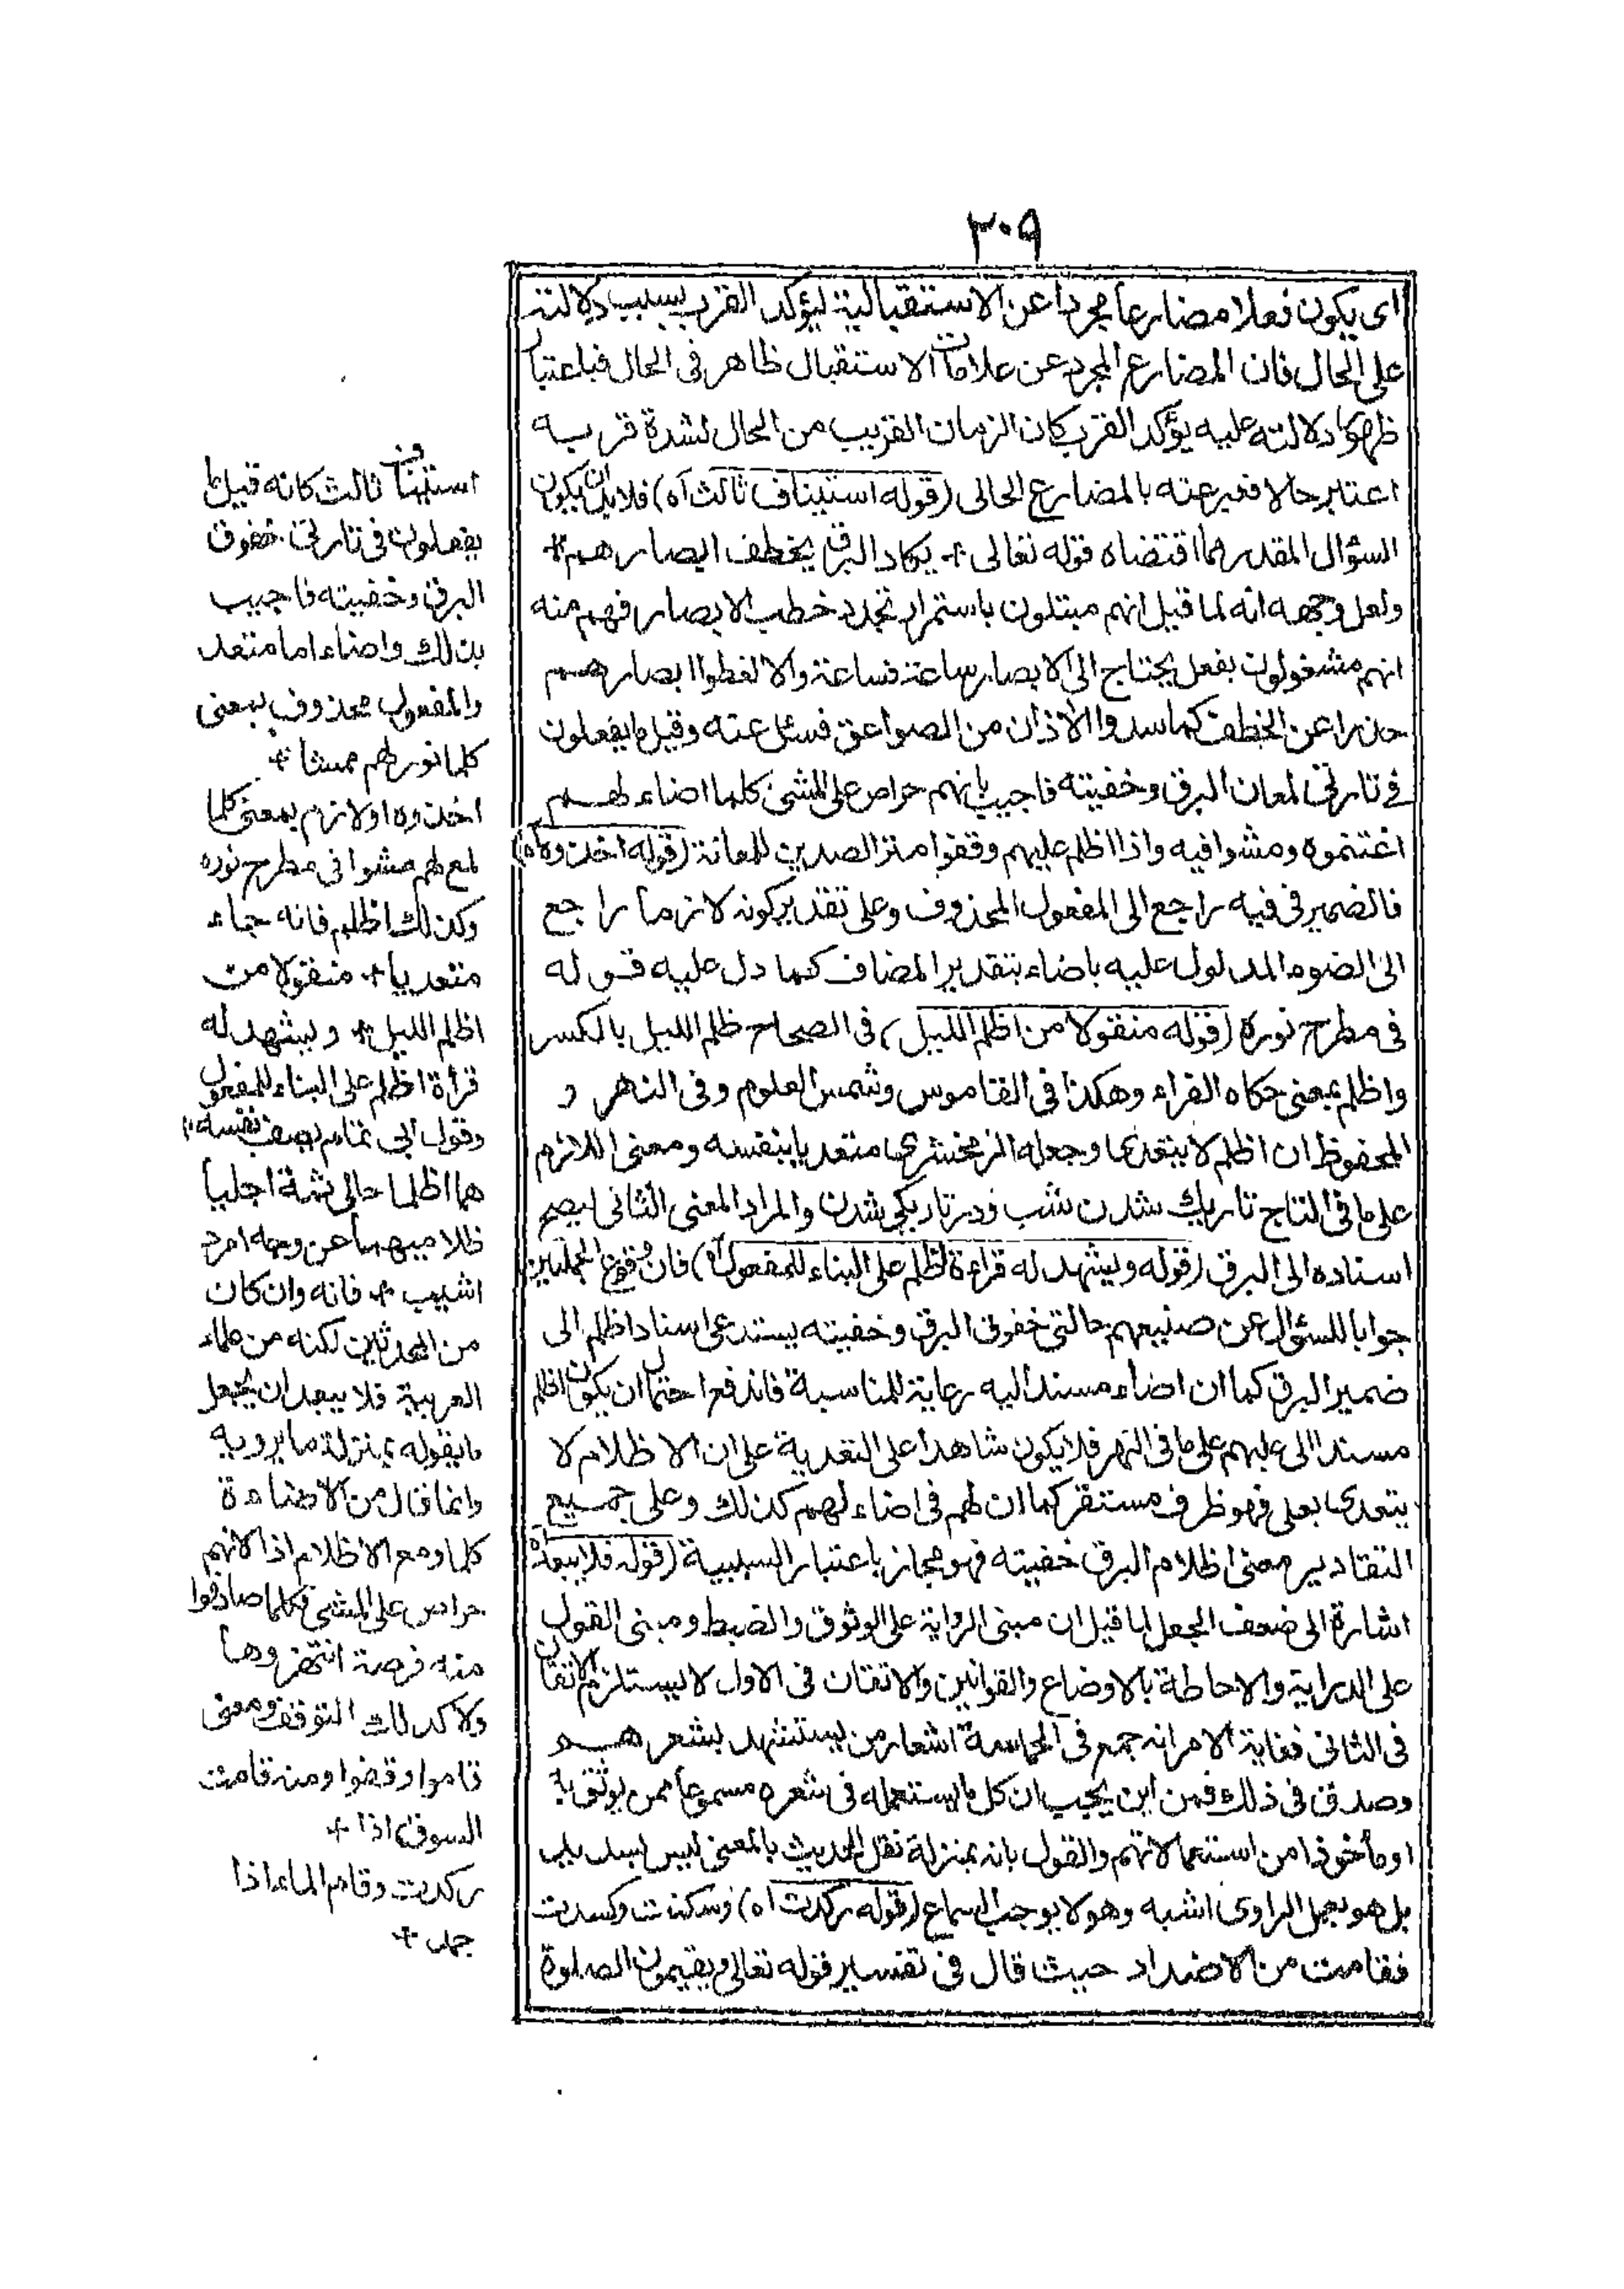 ٣٠٩
اى يكون فعلا مضارعا مجردا عن الاستقبالية ليؤكد القرب بسبب دلالته
على الحال فان المضارع المجرد عن علامات الاستقبال ظاهر فى الحال فباعتبار
ظهور دلالته عليه يؤكد القرب كان الزمان القريب من الحال لشدة قربه
اعتبر حالا فعبر عنه بالمضارع الحالى (قوله استيناف ثالث اه) فلابد ان يكون
السؤال المقدر مما اقتضاه قوله تعالى + يكاد البرق يخطف ابصارهم +
ولعل وجهه انه لما قيل انهم مبتلون باستمرار تجدد خطف الابصار فهم منه
انهم مشغولون بفعل يحتاج الى الابصار ساعة فساعة والا لغطوا ابصارهم
حذرا عن الخطف كما سدوا الاذان من الصواعق فسئل عنه وقيل ما يفعلون
فى تارتى لمعان البرق وخفيته فاجيب بانهم حراص على المشى كلما اضاء لهم
اغتنموه ومشوا فيه واذا اظلم عليهم وقفوا مترصدين للمعانه (قوله اخذوه اه)
فالضمير فى فيه راجع الى المفعول المحذوف وعلى تقدير كونه لازما راجع
الى الضوء المدلول عليه باضاء بتقدير المضاف كما دل عليه قوله
فى مطرح نوره (قوله منقولا من اظلم الليل) فى الصحاح ظلم الليل بالكسر
واظلم بمعنى حكاه الفراء وهكذا فى القاموس وشمس العلوم وفى النهر و
المحفوظ ان اظلم لا يتعدى وجعله الزمخشرى متعديا بنفسه ومعنى اللازم
على ما فى التاج تاريك شدن شب ودر تاريكى شدن والمراد المعنى الثانى ليصح
اسناده الى البرق (قوله ويشهد له قراءة اظلم على البناء للمفعول اه) فان وقوع الجملتين
جوابا للسؤال عن صنيعهم حالتى خفوق البرق وخفيته يستدعى اسناد اظلم الى
ضمير البرق كما ان اضاء مسند اليه رعاية للمناسبة فاندفع احتمال ان يكون اظلم
مسندا الى عليهم على ما فى النهر فلا يكون شاهدا على التعدية على ان الاظلام لا
يتعدى بعلى فهو ظرف مستقر كما ان لهم فى اضاء لهم كذلك وعلى جميع
التقادير معنى اظلام البرق خفيته فهو مجاز باعتبار السببية (قوله فلا يبعد اه)
اشارة الى ضعف الجعل لما قيل ان مبنى الرواية على الوثوق والضبط ومبنى القول
على الدراية والاحاطة بالاوضاع والقوانين والاتقان فى الاول لا يستلزم الاتقان
فى الثانى فغاية الامر انه جمع فى الحماسة اشعار من يستشهد بشعرهم
وصدق فى ذلك فمن اين يجب ان كل ما يستعمله فى شعره مسموعا ممن يوثق به
او ماخوذا من استعمالاتهم والقول بانه بمنزلة نقل الحديث بالمعنى ليس بسديد
بل هو بعمل الراوى اشبه وهو لا يوجب السماع (قوله ركدت اه) وسكنت وكسدت
فقامت من الاضداد حيث قال فى تفسير قوله تعالى ويقيمون الصلوة
استيناف ثالث كانه قيل ما
يفعلون فى تارتى خفوق
البرق وخفيته فاجيب
بذلك واضاء اما متعد
والمفعول محذوف بمعنى
كلما نور لهم ممشا +
اخذوه او لازم بمعنى كلما
لمع لهم مشوا فى مطرح نوره
وكذلك اظلم فانه جاء
متعديا + منقولا من
اظلم الليل + ويشهد له
قرأة اظلم على البناء للمفعول
وقول ابى تمام يصف نفسه
هما اظلما حالى ثمة اجليا
ظلاميهما عن وجه امرد
اشيب + فانه وان كان
من المحدثين لكنه من علماء
العربية فلا يبعد ان يجعل
ما يقوله بمنزلة ما يرويه
وانما قال من الاضاءة
كلما ومع الاظلام اذا لانهم
حراص على المشى فكلما صادفوا
منه فرصة انتهزوها
ولا كذلك التوقف ومعنى
قاموا وقفوا ومنه قامت
السوق اذا +
ركدت وقام الماء اذا
جمد +